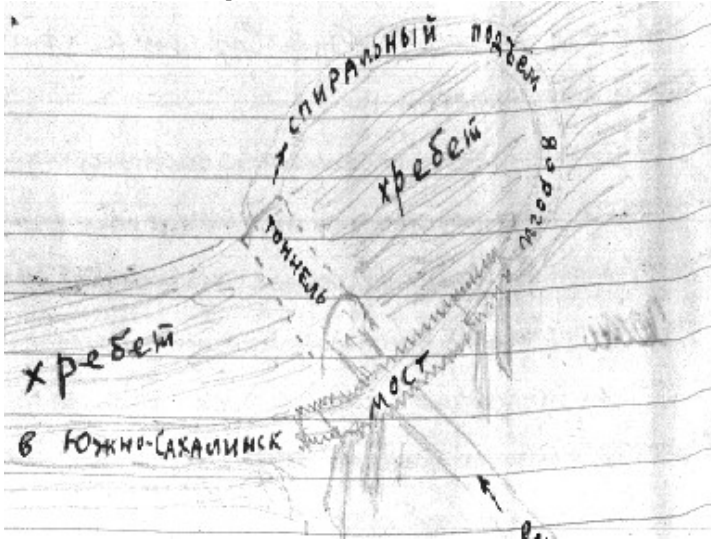 СПИРАЛЬНЫЙ ПОДЪЕМ
ДОРОГИ
хребет
ТОННЕЛЬ
хребет
МОСТ
В ЮЖНО-САХАЛИНСК